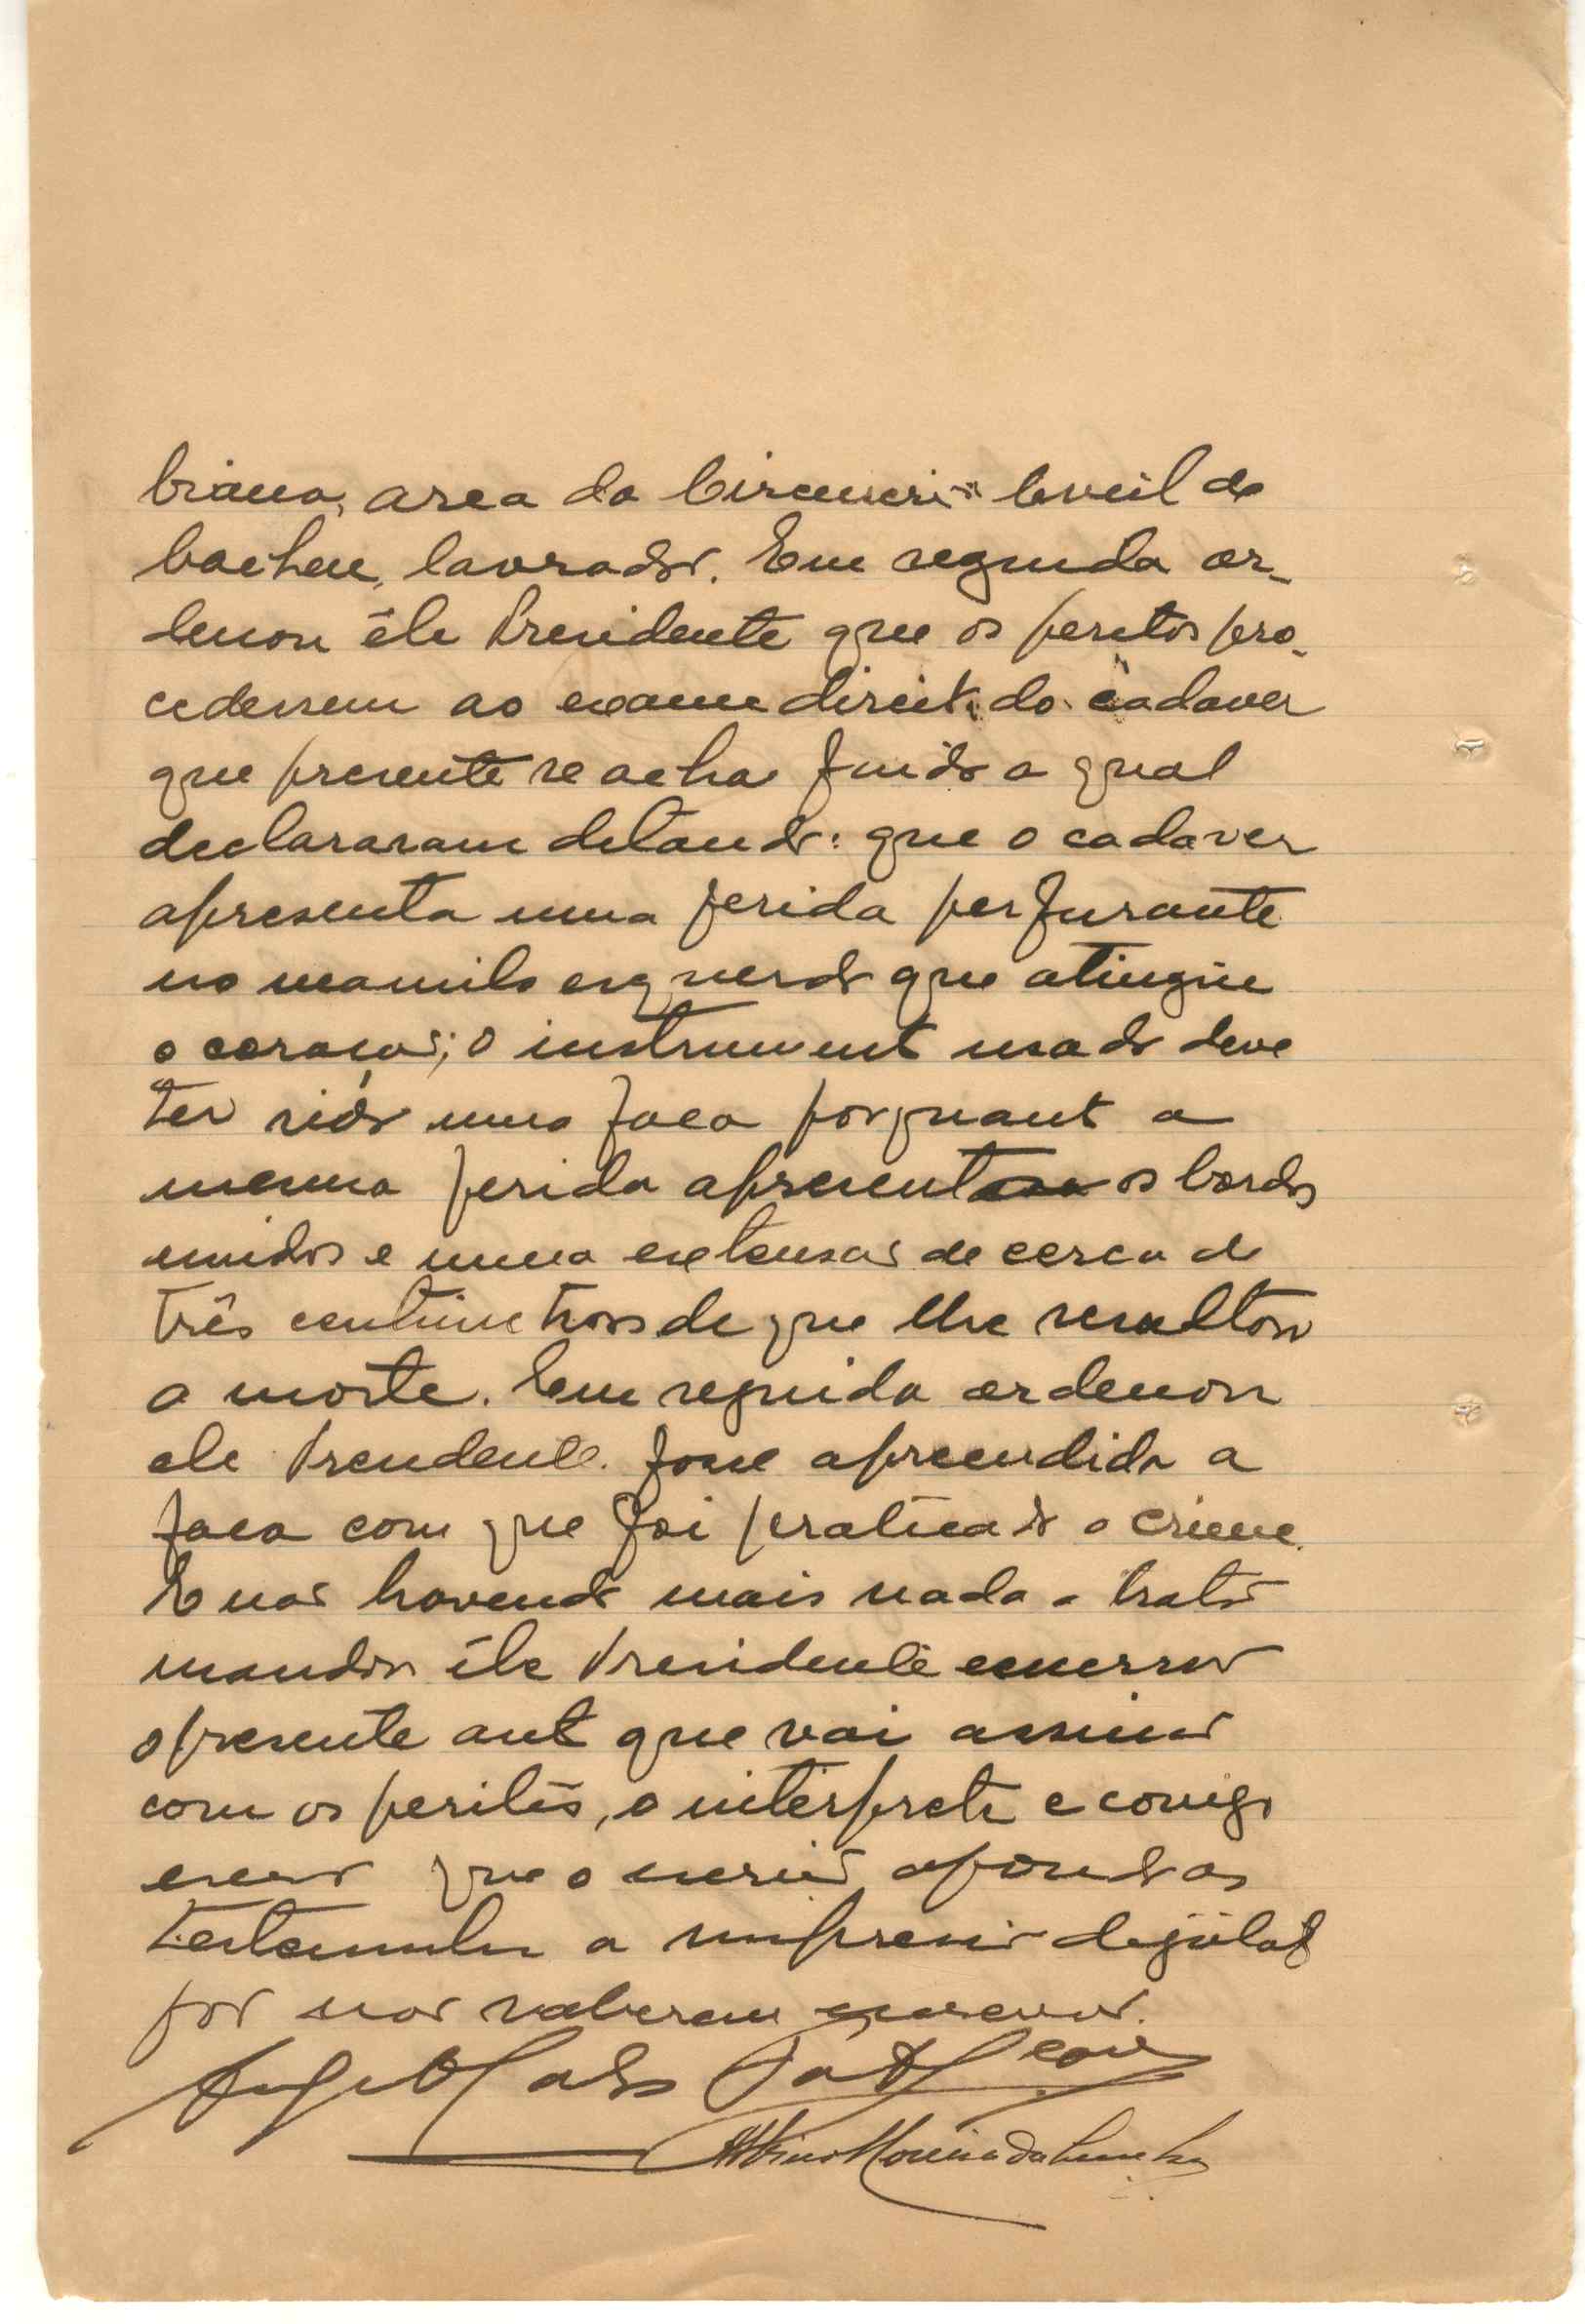 briana, area da Circunscrição Civil de
Cacheu, lavrador. Em seguida or-
denou êle Presidente que os peritos pro-
cedessem ao exame direto do cadaver
que presente se acha findo o qual
declararam detando: que o cadaver
apresenta uma ferida perfurante
no mamilo esquerdo que atingiu
o coração; o instrumento usado deve
ter sido uma faca porquanto a
mesma ferida apresenta os bordos
unidos e uma extensão de cerca de
três centimetros de que lhe resultou
a morte. Em seguida ordenou
ele Presidente fosse apreendida a
faca com que foi praticado o crime.
E não havendo mais nada a tratar
mandou êle Presidente encerrar
o presente auto que vai assinar
com os peritos, o interprete e comigo
que o escrevi apondo as
testemunhas a impressão digital
por não saberem escrever.
Albino Moreira da Cunha